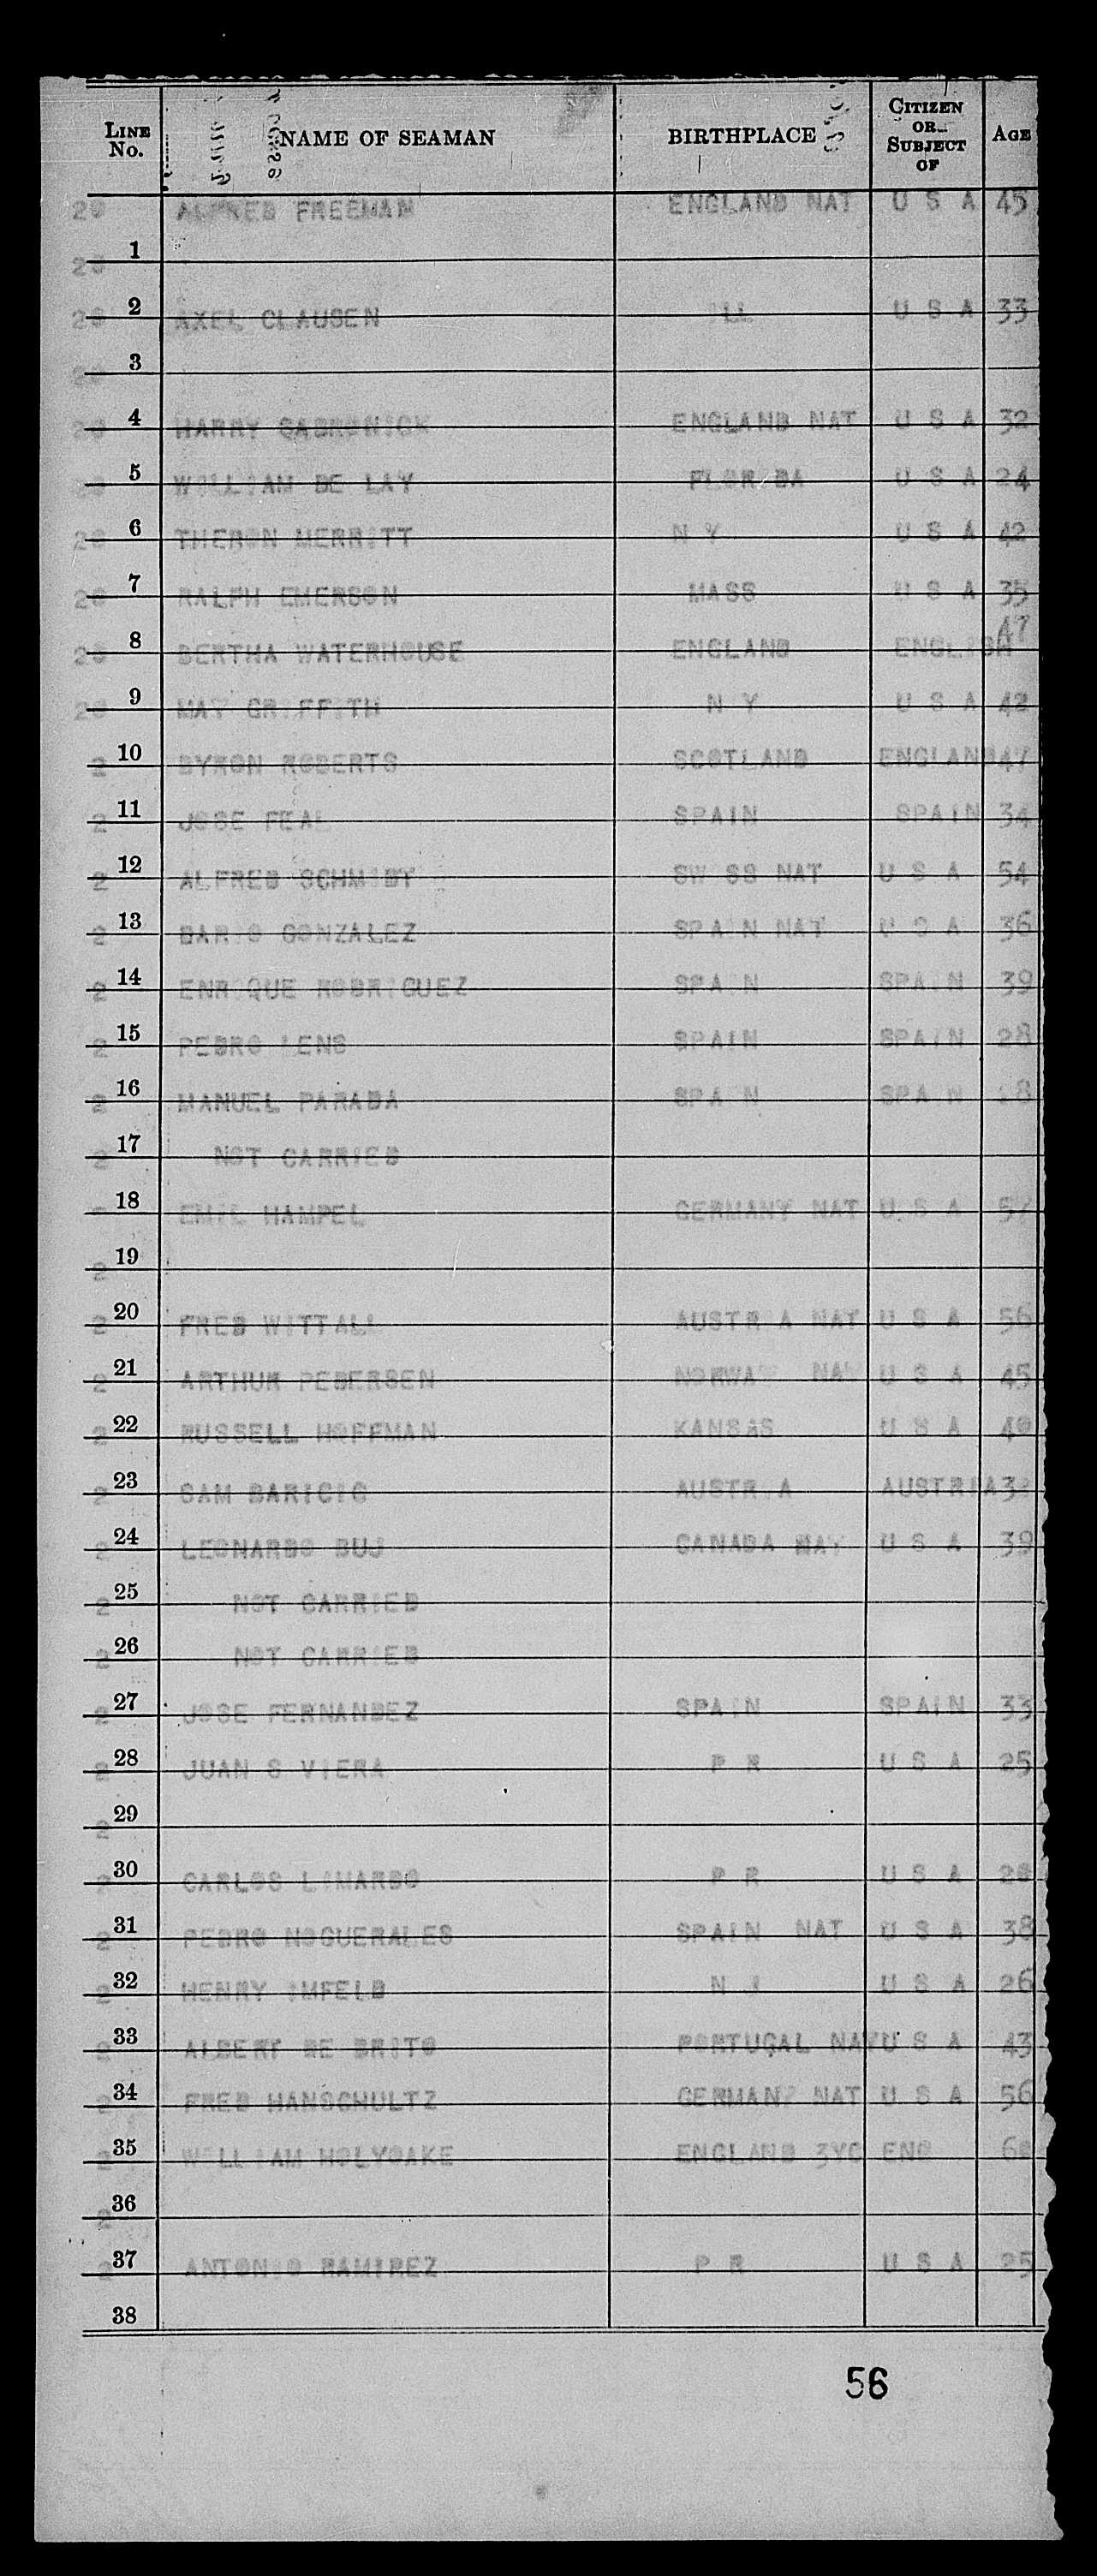 LINE No. NAME OF SEAMAN BIRTHPLACE CITIZEN OR SUBJECT OF AGE
ALFRED FREEMAN ENGLAND NAT U S A 45
1
2 AXEL CLAUSEN ILL U S A 33
3
4 HARRY ENGLAND NAT U S A 32
5 WILLIAM DE LAY FLORIDA U S A 24
6 THERON MERRITT N Y U S A 42
7 RALPH EMERSON MASS U S A 35
8 BERTHA WATERHOUSE ENGLAND ENGLISH 47
9 MAY GRIFFITH N Y U S A 42
10 BYRON ROBERTS SCOTLAND ENGLAND 47
11 JOSE FEAL SPAIN SPAIN 34
12 ALFRED SCHMIDT SWISS NAT U S A 54
13 DARIO GONZALEZ SPAIN NAT U S A 36
14 ENRIQUE RODRIGUEZ SPAIN SPAIN 39
15 PEDRO LENS SPAIN SPAIN 28
16 MANUEL PARADA SPAIN SPAIN
17 NOT CARRIED
18 EMIL HAMPEL GERMANY NAT U S A 57
19
20 FRED WITTALL AUSTRIA NAT U S A 56
21 ARTHUR PEDERSEN NORWAY NAT U S A 45
22 RUSSELL HOFFMAN KANSAS U S A 40
23 SAM BARICIC AUSTRIA AUSTRIA
24 LEONARDO BUJ CANADA NAT U S A 39
25 NOT CARRIED
26 NOT CARRIED
27 JOSE FERNANDEZ SPAIN SPAIN 33
28 JUAN S VIERA P R U S A 25
29
30 CARLOS LIMARDO P R U S A
31 PEDRO NOGUERALES SPAIN NAT U S A 38
32 HENRY IMFELD N J U S A 26
33 ALBERT DE BRITO PORTUGAL NAT U S A 43
34 FRED HANSCHULTZ GERMANY NAT U S A 56
35 WILLIAM HOLYOAKE ENGLAND ENG
36
37 ANTONIO RAMIREZ P R U S A 25
38
56